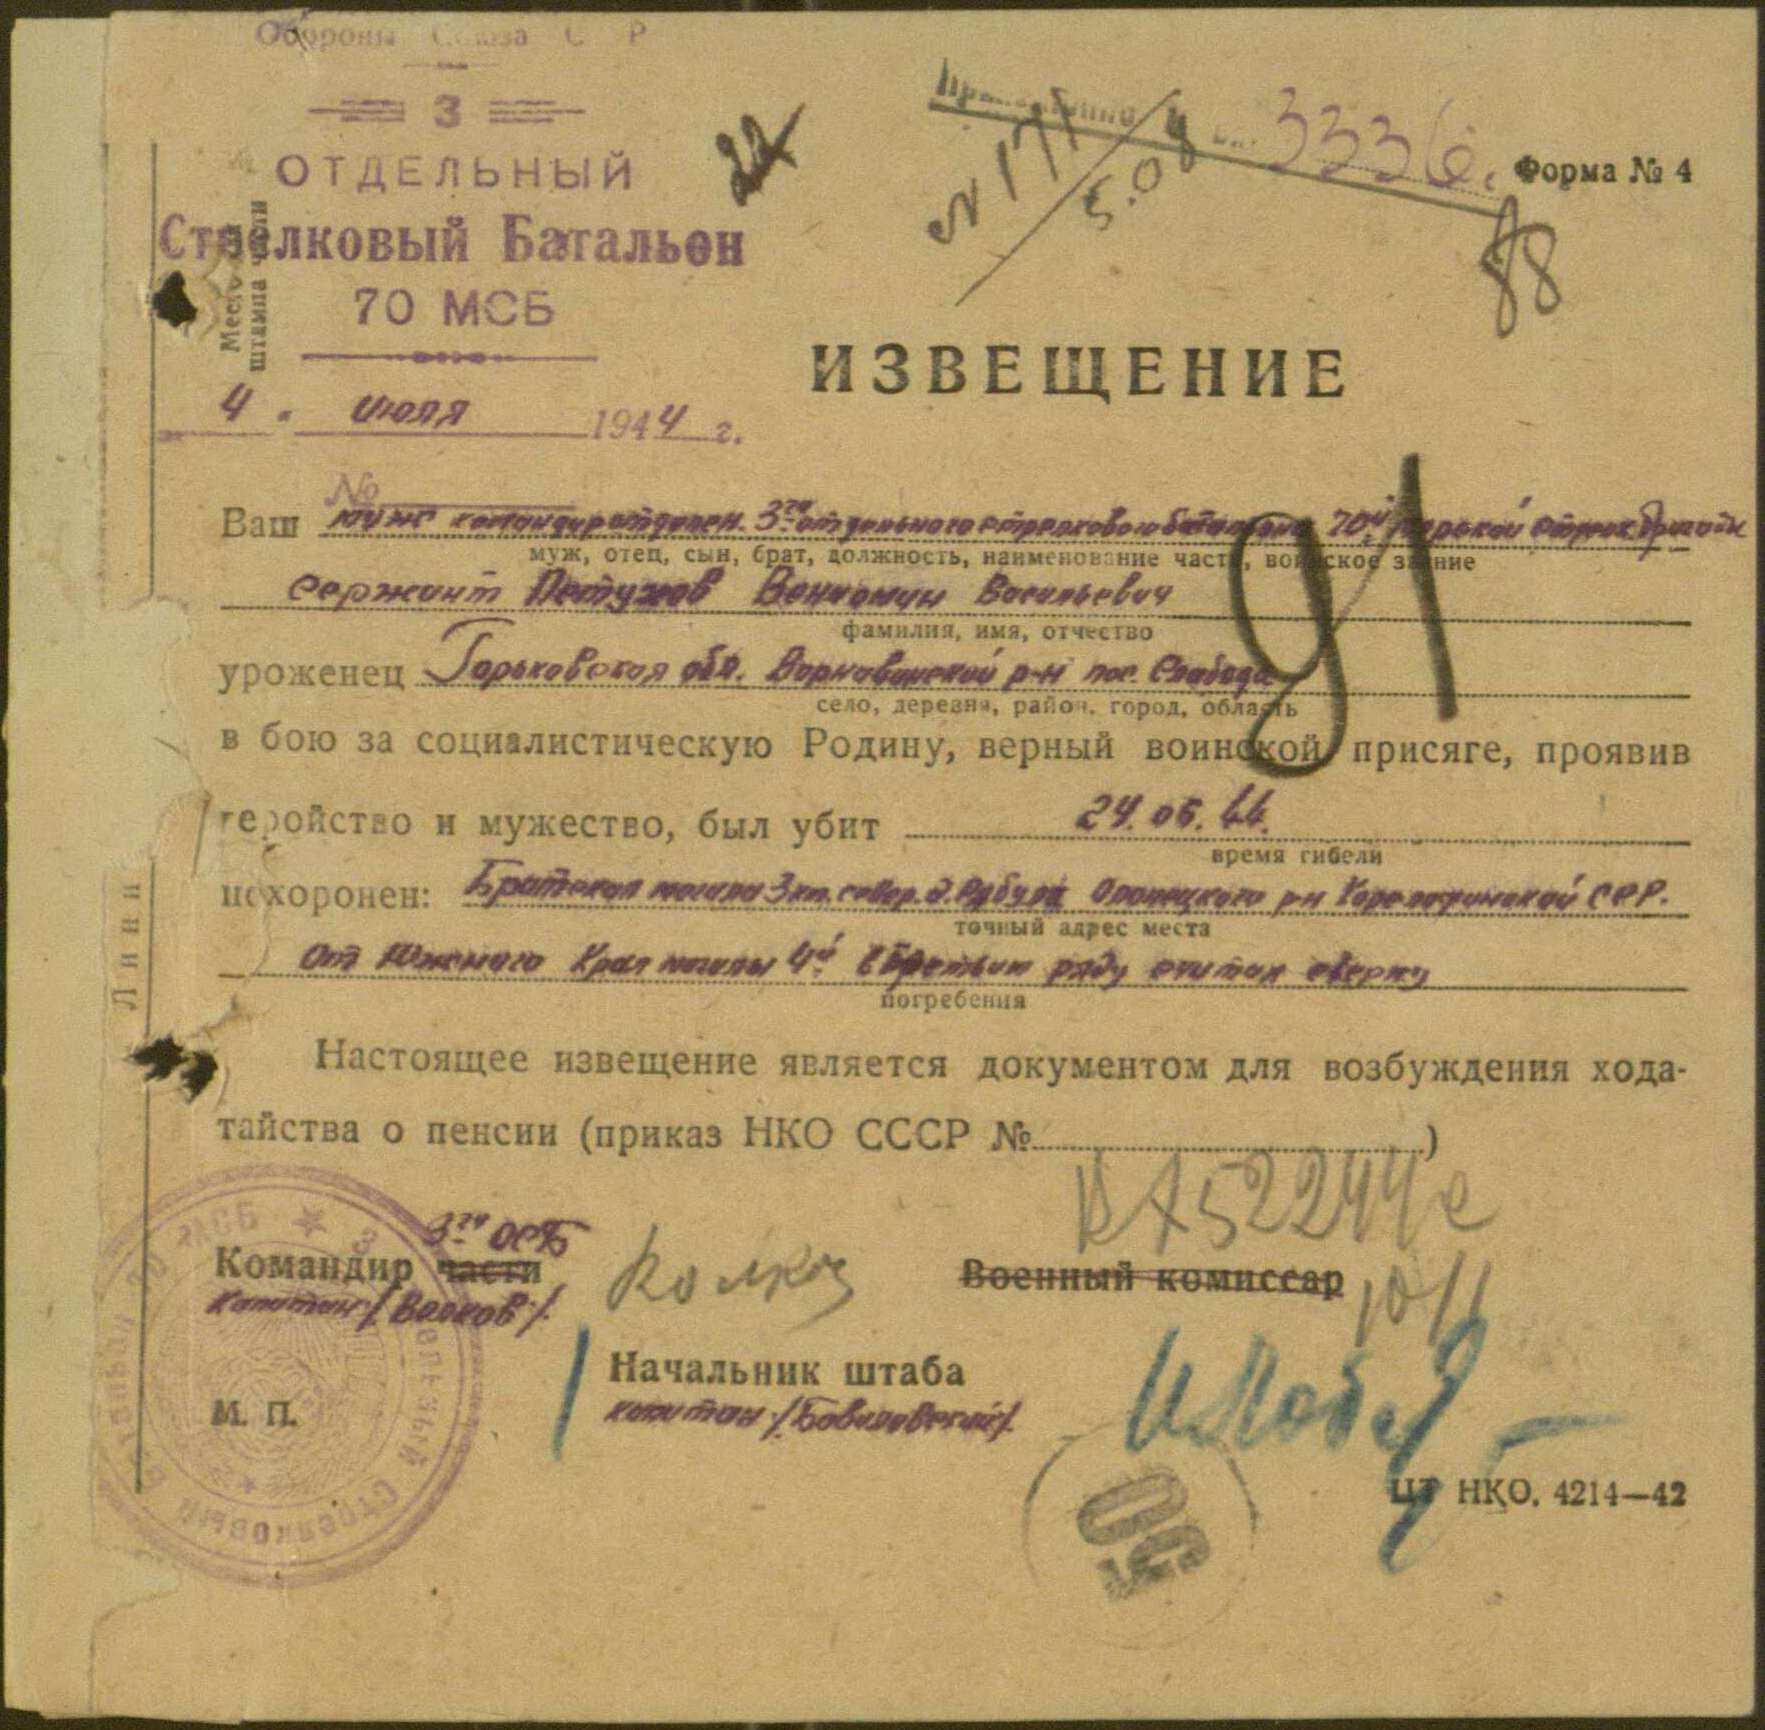 Обороны Союза С Р
3
ОТДЕЛЬНЫЙ
Стрелковый Батальон
70 МСБ
Место для штампа части
4. июля 1944 г.
22
№ 171
5.08
3336.
Форма № 4
88
ИЗВЕЩЕНИЕ
91
№
Ваш муж командир отделен. 3го отдельного стрелкового батальона 70й морской стрелк. бригады
муж, отец, сын, брат, должность, наименование части, воинское звание
Сержант Петухов Вениамин Васильевич
фамилия, имя, отчество
уроженец Горьковская обл. Варнавинский р-н пос. Слабода
село, деревня, район, город, область
в бою за социалистическую Родину, верный воинской присяге, проявив
геройство и мужество, был убит 24.06.44.
время гибели
похоронен: Братская могила 3 км. север. д. Рабула Олонецкого р-н Карелофинской ССР.
точный адрес места
от Южного края могилы 4й в третьем ряду считая сверху
погребения
Линия
Настоящее извещение является документом для возбуждения хода-
тайства о пенсии (приказ НКО СССР №)
52244
3го ОСБ
Командир части
капитан /Волков/.
Военный комиссар
10/11
Начальник штаба
капитан /
М. П.
Отдельный Стрелковый
50
ЦТ НКО. 4214—42